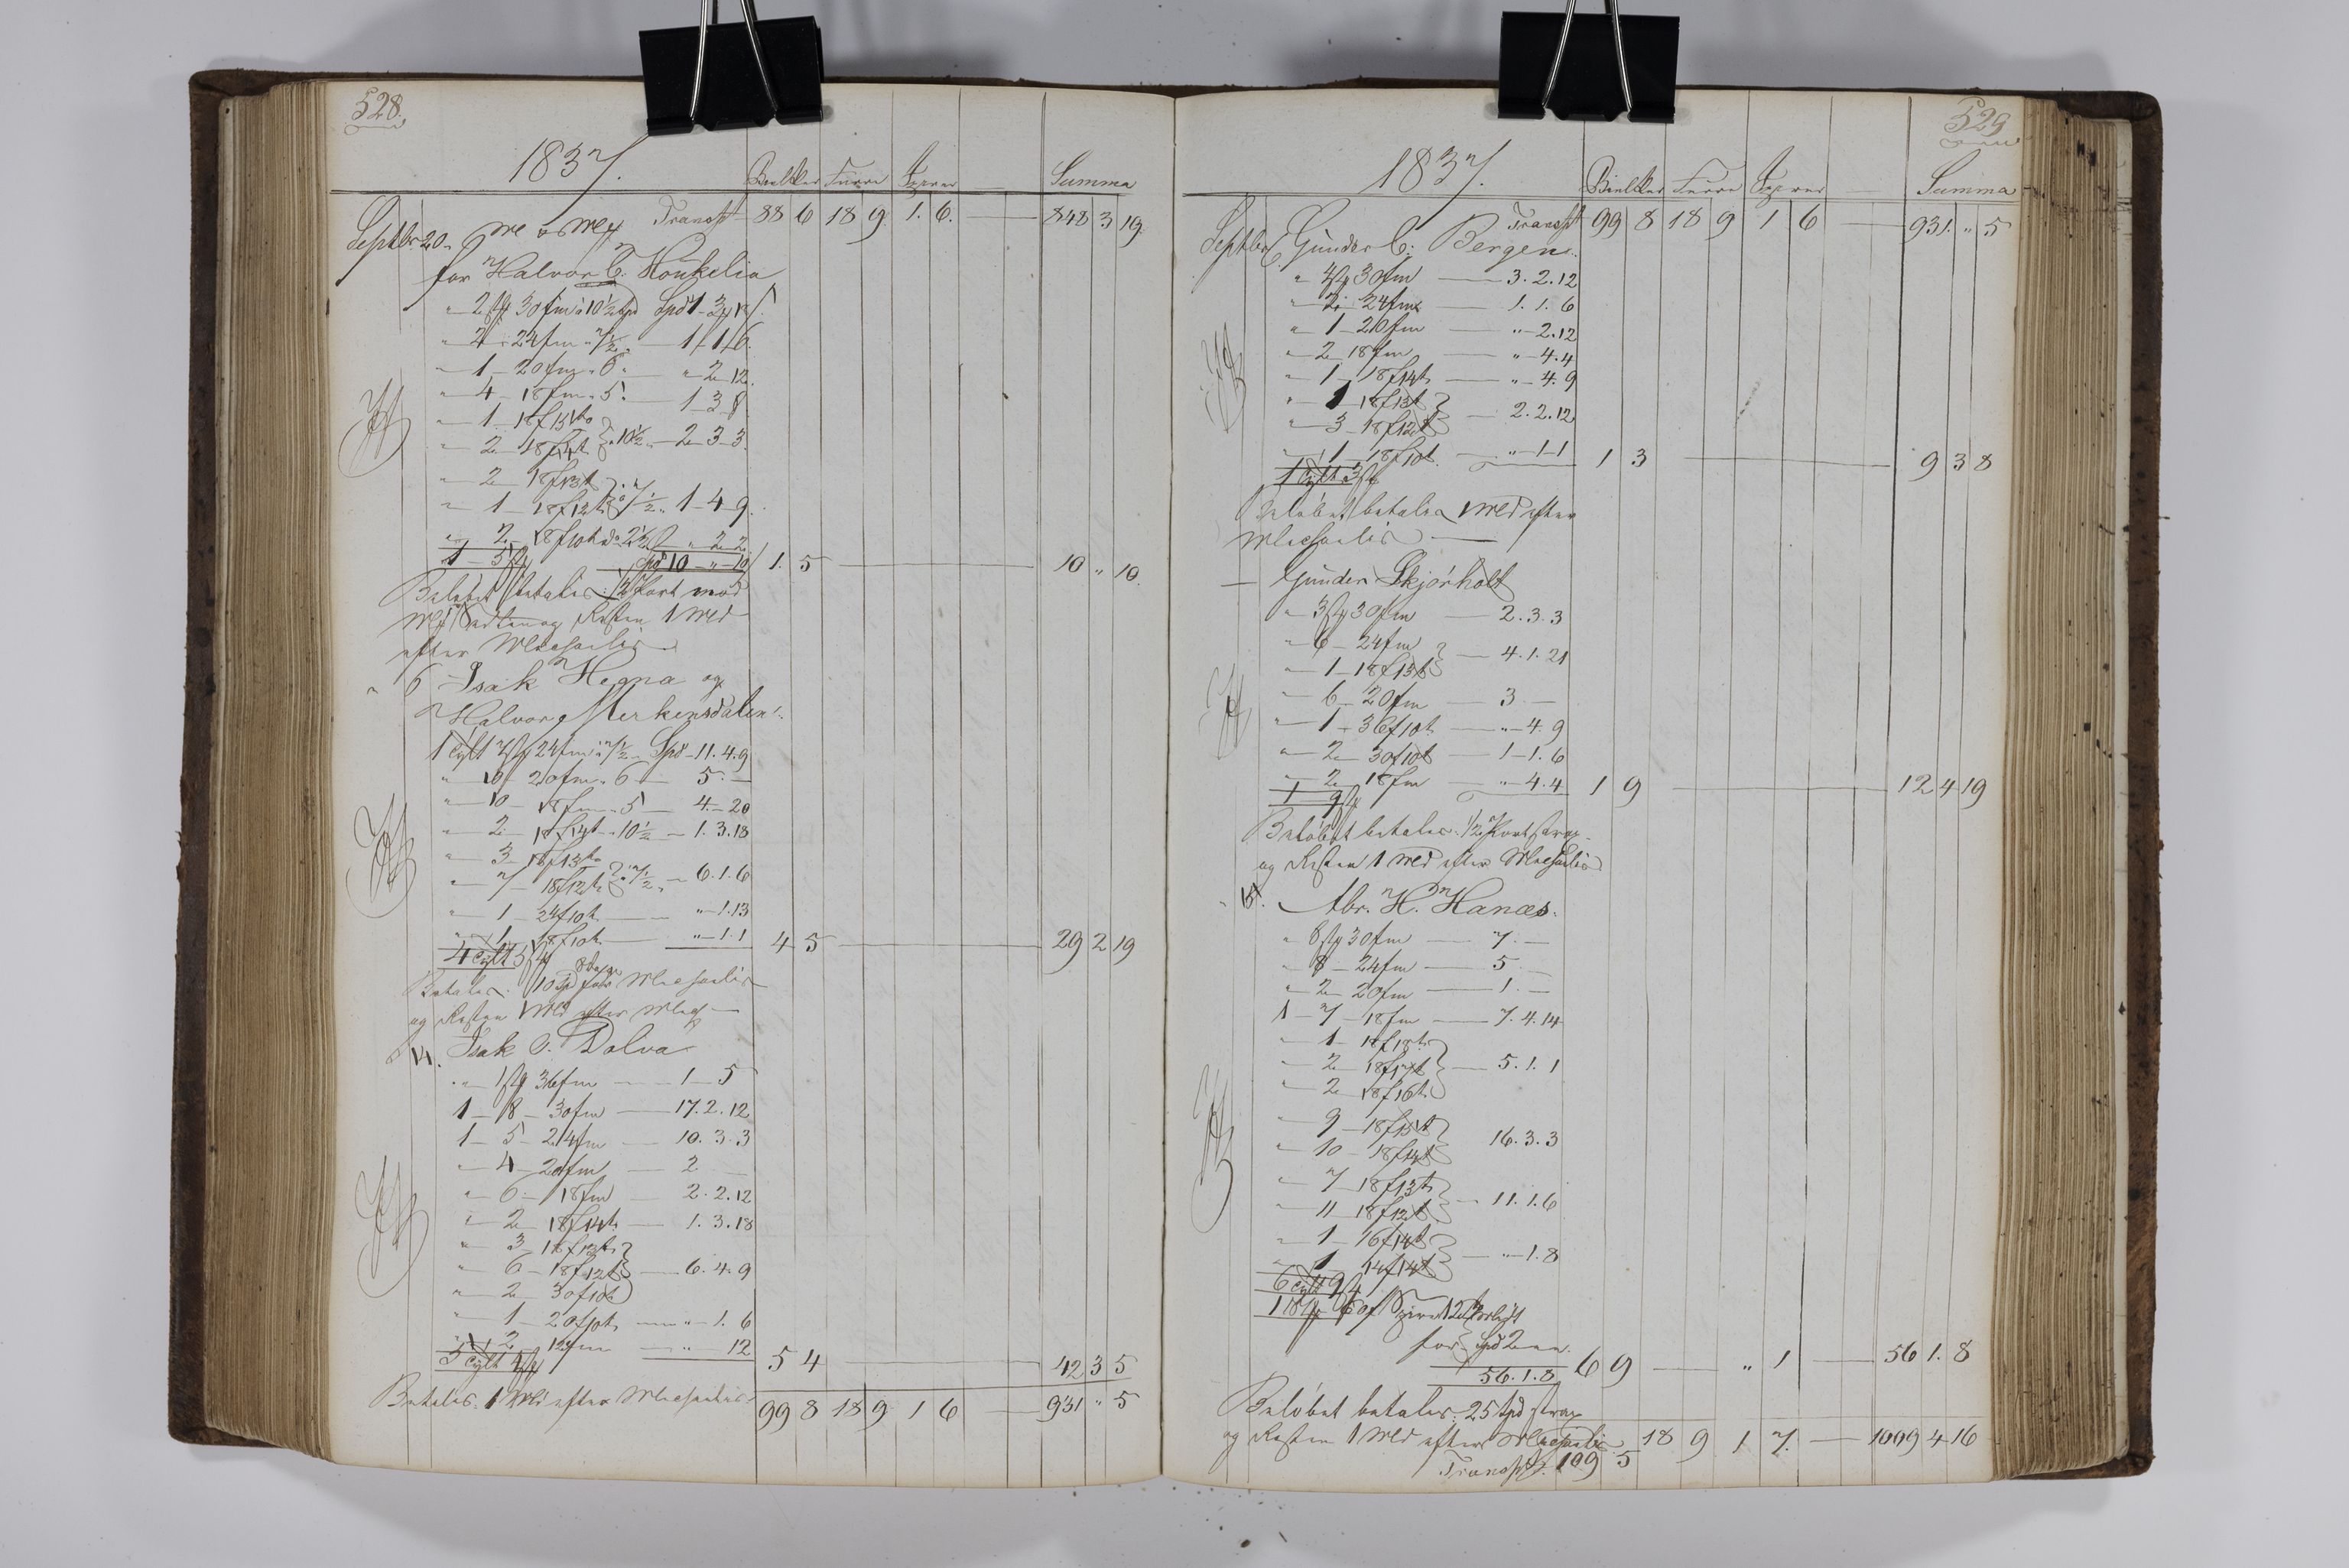 528.
1837.
Bielker Furre Sperrer Summa
Septbr 20. Transpt 88 6 18 9. 1. 6. 848 3 19.
for Halvor C. Houkelia
" 2 st 30 fm a 10½ Spd 1-3
" 4 - 24 fm " 7½ - 1-1-6.
" 1 - 20 fm " 6 " " 2-12.
" 4 - 18 fm " 5 " 1-3-8
" 1 - 18 f 15 to
" 2 - 18 f 14 t } " 10½ " 2-3-3.
" 2 - 18 f 13 t
" 1 - 18 f 12 t } 7½ " 1-4-9.
" 2 - 18 f 10 t " 2.2.
1 - 5 st Spd 10 - " - 10 1. 5 10 " 10.
Beløbet betales ½ Part mod
og Resten 1 Md
efter Michaelis
" 6 Isak Hegna og
Halvor Sterkensdalen:
1 Tylt 7 st 24 fm " 7½ Spd - 11.4.9
" 10 - 20 fm " 6 - 5. -
" 10 - 18 fm " 5 - 4 - 20
" 2 - 18 f 14 t " 10½ - 1.3.18
" 3 - 18 f 13 to
" 7 - 18 f 12 t } 7½ " - 6.1.6
" 1 - 24 f 10 t - " - 1.13
" 1 - 18 f 10 t. - " - 1.1
4 Tylt 5 st 4 5 29 2 19
Betales 10 Spd 8 Dage før Michaelis
og Resten 1 Md efter Mich
" 14. Isak O. Dolva
" 1 st 36 fm - 1 - 5
1 - 8 - 30 fm - 17.2.12
1 - 5 - 24 fm - 10.3.3
" 4 - 20 fm - 2 -
" 6 - 18 fm - 2.2.12
" 2 - 18 f 14 t - 1.3.18
" 3 - 18 f 13 t
" 6 - 18 f 12 t } - 6.4.9
" 2 - 30 f 10 t
" 1 - 20 f 10 t - " - 1.6
" 2 - 12 fm - " - 12
5 Tylt 4 st 5 4 42 3 5
Betales 1 Md efter Michaelis. 99 8 18 9 1 6 931 " 5
529
1837.
Bielker Furre Sperrer Summa
Septbr Transpt 99 8 18 9 1 6 931. " 5
Gunder C: Bergen.
" 4 st 30 fm - 3.2.12
" 2 - 24 fm - 1.1.6
" 1 - 20 fm - " - 2.12
" 2 - 18 fm - " - 4.4
" 1 - 18 f 14 t - " - 4.9
" 1 - 18 f 13 t
" 3 - 18 f 12 t } - 2.2.12
" 1 - 18 f 10 t. - " - 1-1
1 Tylt 3 st 1 3 9 3 8
Beløbet betales 1 Md efter
Michaelis
- Gunder Skjørholt
" 3 st 30 fm - 2.3.3
" 6 - 24 fm
" 1 - 18 f 13 t } - 4.1.21
" 6 - 20 fm - 3 -
" 1 - 36 f 10 t - " - 4.9
" 2 - 30 f 10 t - 1-1.6
" 2 - 18 fm - " - 4.4
1 9 st 1 9 12 4 19
Beløbet betales ½ Part strax
og Resten 1 Md efter Michaelis
" 15. Abr. H. Hanæs.
" 8 st 30 fm - 7. -
" 8 - 24 fm - 5 -
" 2 - 20 fm - 1. -
1 - 7 - 18 fm - 7.4.14
" 1 - 18 f 18 t
" 2 - 18 f 17 t } - 5.1.1
" 2 - 18 f 16 t
" 9 - 18 f 15 t
" 10 - 18 f 14 t } 16.3.3
" 7 - 18 f 13 t
" 11 - 18 f 12 t } - 11.1.6
" 1 - 16 f 14 t
" 1 - 14 f 14 t } - " - 1.8
6 Tylt 9 st
for Spd 2 " "
56.1.8 6 9 " 1 56 1. 8
Beløbet betales. 25 Spd strax
og Resten 1 Md efter Michaelis 18 9 1 7. 1009 4 16
Transpt. 109 5